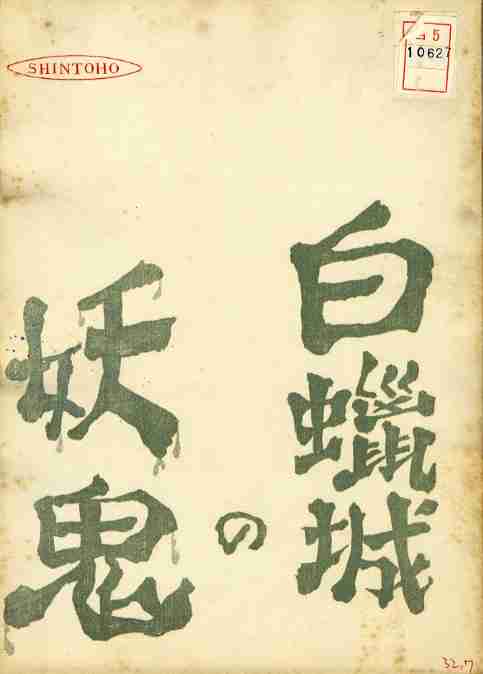 SHINTOHO
5
10627
白蠟城
の
妖鬼
32.7